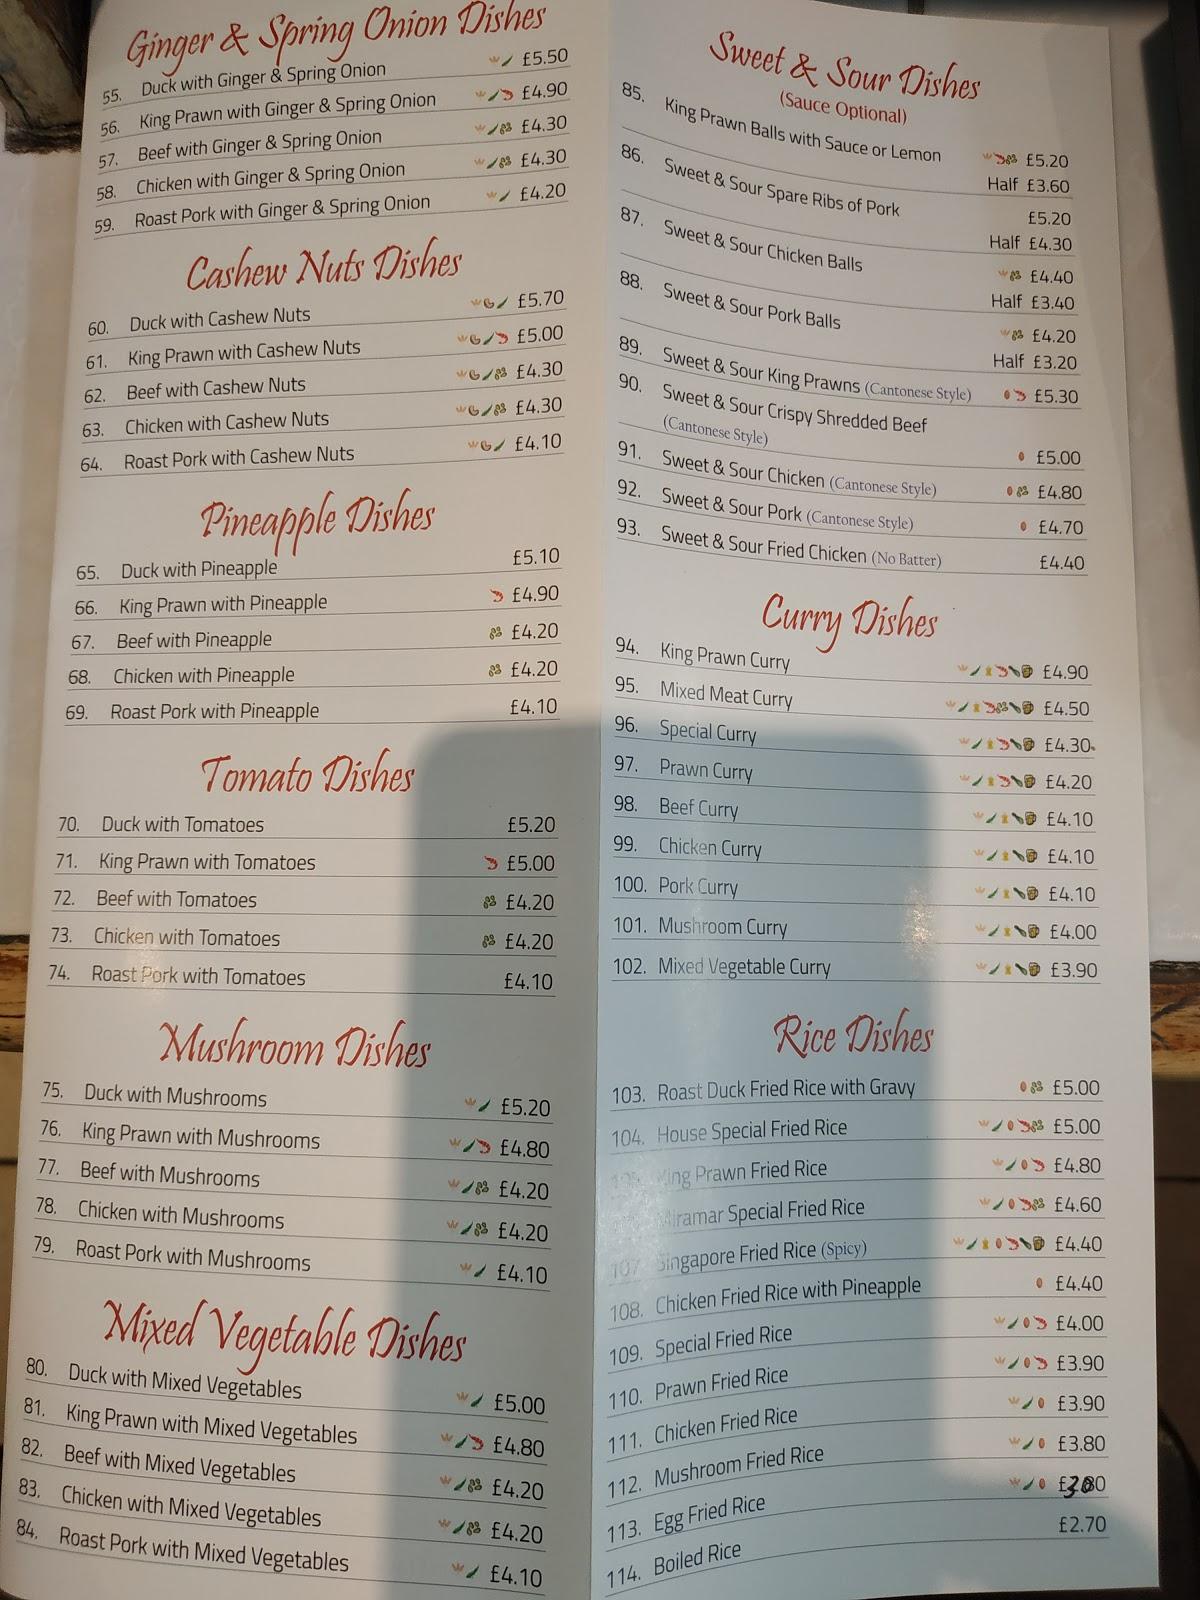 Ginger & Spring Onion Dishes
55. Duck with Ginger & Spring Onion £5.50
56. King Prawn with Ginger & Spring Onion £4.90
57. Beef with Ginger & Spring Onion £4.30
58. Chicken with Ginger & Spring Onion £4.30
59. Roast Pork with Ginger & Spring Onion £4.20
Cashew Nuts Dishes
60. Duck with Cashew Nuts £5.70
61. King Prawn with Cashew Nuts £5.00
62. Beef with Cashew Nuts £4.30
63. Chicken with Cashew Nuts £4.30
64. Roast Pork with Cashew Nuts £4.10
Pineapple Dishes
65. Duck with Pineapple £5.10
66. King Prawn with Pineapple £4.90
67. Beef with Pineapple £4.20
68. Chicken with Pineapple £4.20
69. Roast Pork with Pineapple £4.10
Tomato Dishes
70. Duck with Tomatoes £5.20
71. King Prawn with Tomatoes £5.00
72. Beef with Tomatoes £4.20
73. Chicken with Tomatoes £4.20
74. Roast Pork with Tomatoes £4.10
Mushroom Dishes
75. Duck with Mushrooms £5.20
76. King Prawn with Mushrooms £4.80
77. Beef with Mushrooms £4.20
78. Chicken with Mushrooms £4.20
79. Roast Pork with Mushrooms £4.10
Mixed Vegetable Dishes
80. Duck with Mixed Vegetables £5.00
81. King Prawn with Mixed Vegetables £4.80
82. Beef with Mixed Vegetables £4.20
83. Chicken with Mixed Vegetables £4.20
84. Roast Pork with Mixed Vegetables £4.10
Sweet & Sour Dishes
(Sauce Optional)
85. King Prawn Balls with Sauce or Lemon £5.20
Half £3.60
86. Sweet & Sour Spare Ribs of Pork £5.20
Half £4.30
87. Sweet & Sour Chicken Balls £4.40
Half £3.40
88. Sweet & Sour Pork Balls £4.20
Half £3.20
89. Sweet & Sour King Prawns (Cantonese Style) £5.30
90. Sweet & Sour Crispy Shredded Beef
(Cantonese Style) £5.00
91. Sweet & Sour Chicken (Cantonese Style) £4.80
92. Sweet & Sour Pork (Cantonese Style) £4.70
93. Sweet & Sour Fried Chicken (No Batter) £4.40
Curry Dishes
94. King Prawn Curry £4.90
95. Mixed Meat Curry £4.50
96. Special Curry £4.30
97. Prawn Curry £4.20
98. Beef Curry £4.10
99. Chicken Curry £4.10
100. Pork Curry £4.10
101. Mushroom Curry £4.00
102. Mixed Vegetable Curry £3.90
Rice Dishes
103. Roast Duck Fried Rice with Gravy £5.00
104. House Special Fried Rice £5.00
105. King Prawn Fried Rice £4.80
Miramar Special Fried Rice £4.60
107. Singapore Fried Rice (Spicy) £4.40
108. Chicken Fried Rice with Pineapple £4.40
109. Special Fried Rice £4.00
110. Prawn Fried Rice £3.90
111. Chicken Fried Rice £3.90
112. Mushroom Fried Rice £3.80
113. Egg Fried Rice
114. Boiled Rice £2.70